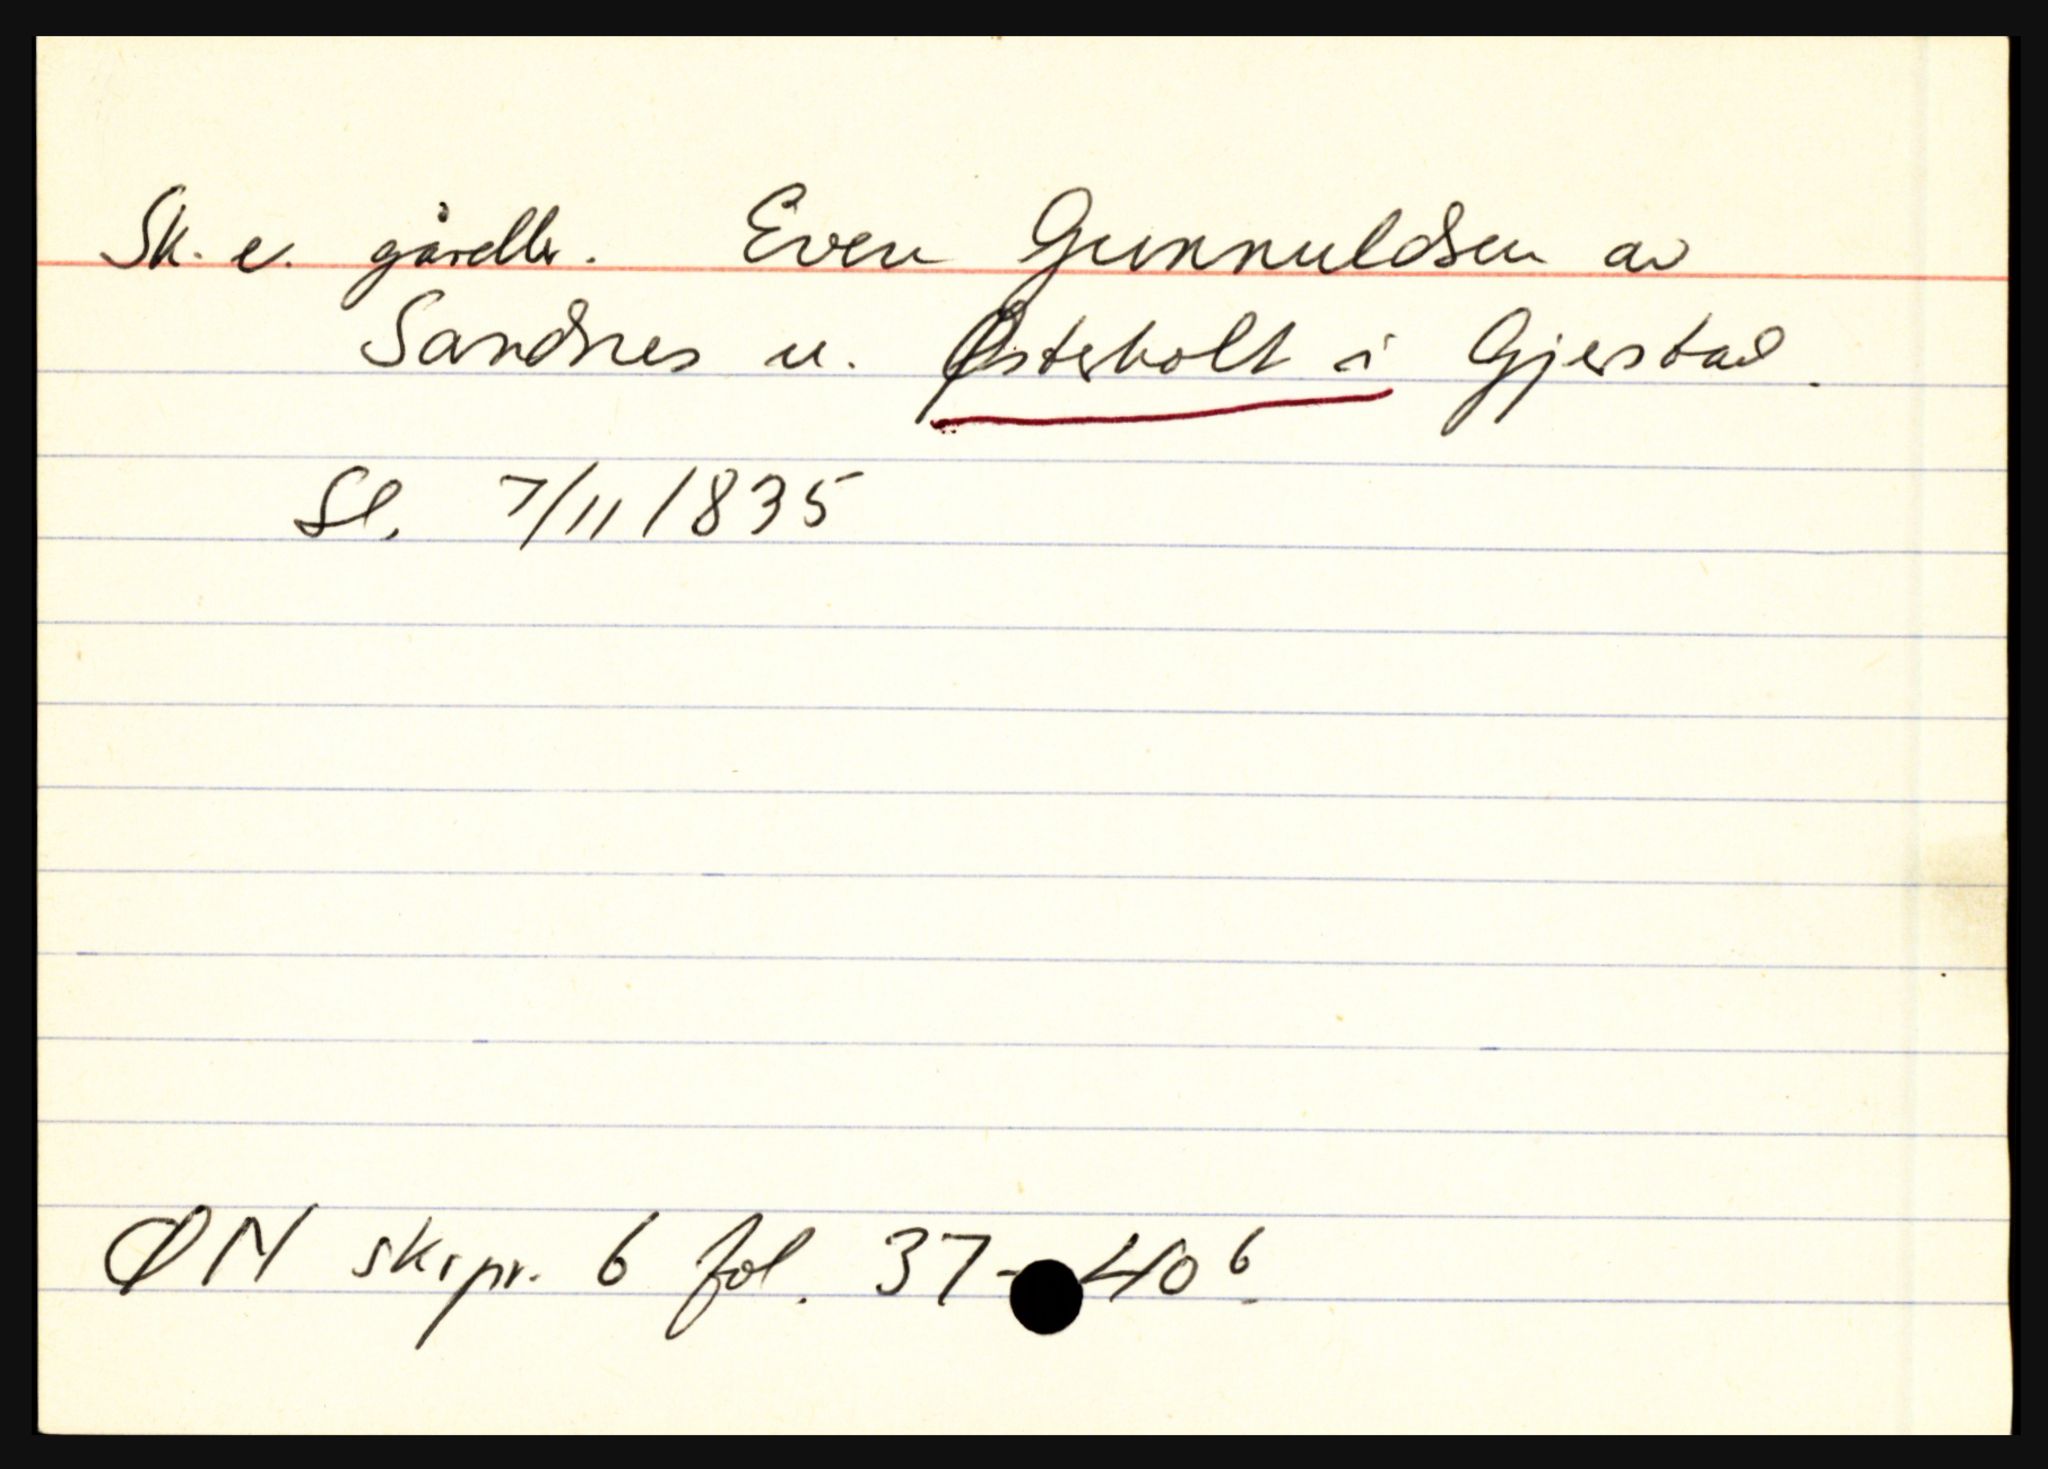 Sk. e. gårdbr. Even Gunnuldsen av
Sandnes u. Østerholt i Gjerstad.
Sl. 7/11 1835
ØN skrpr. 6 fol. 37-40 b.